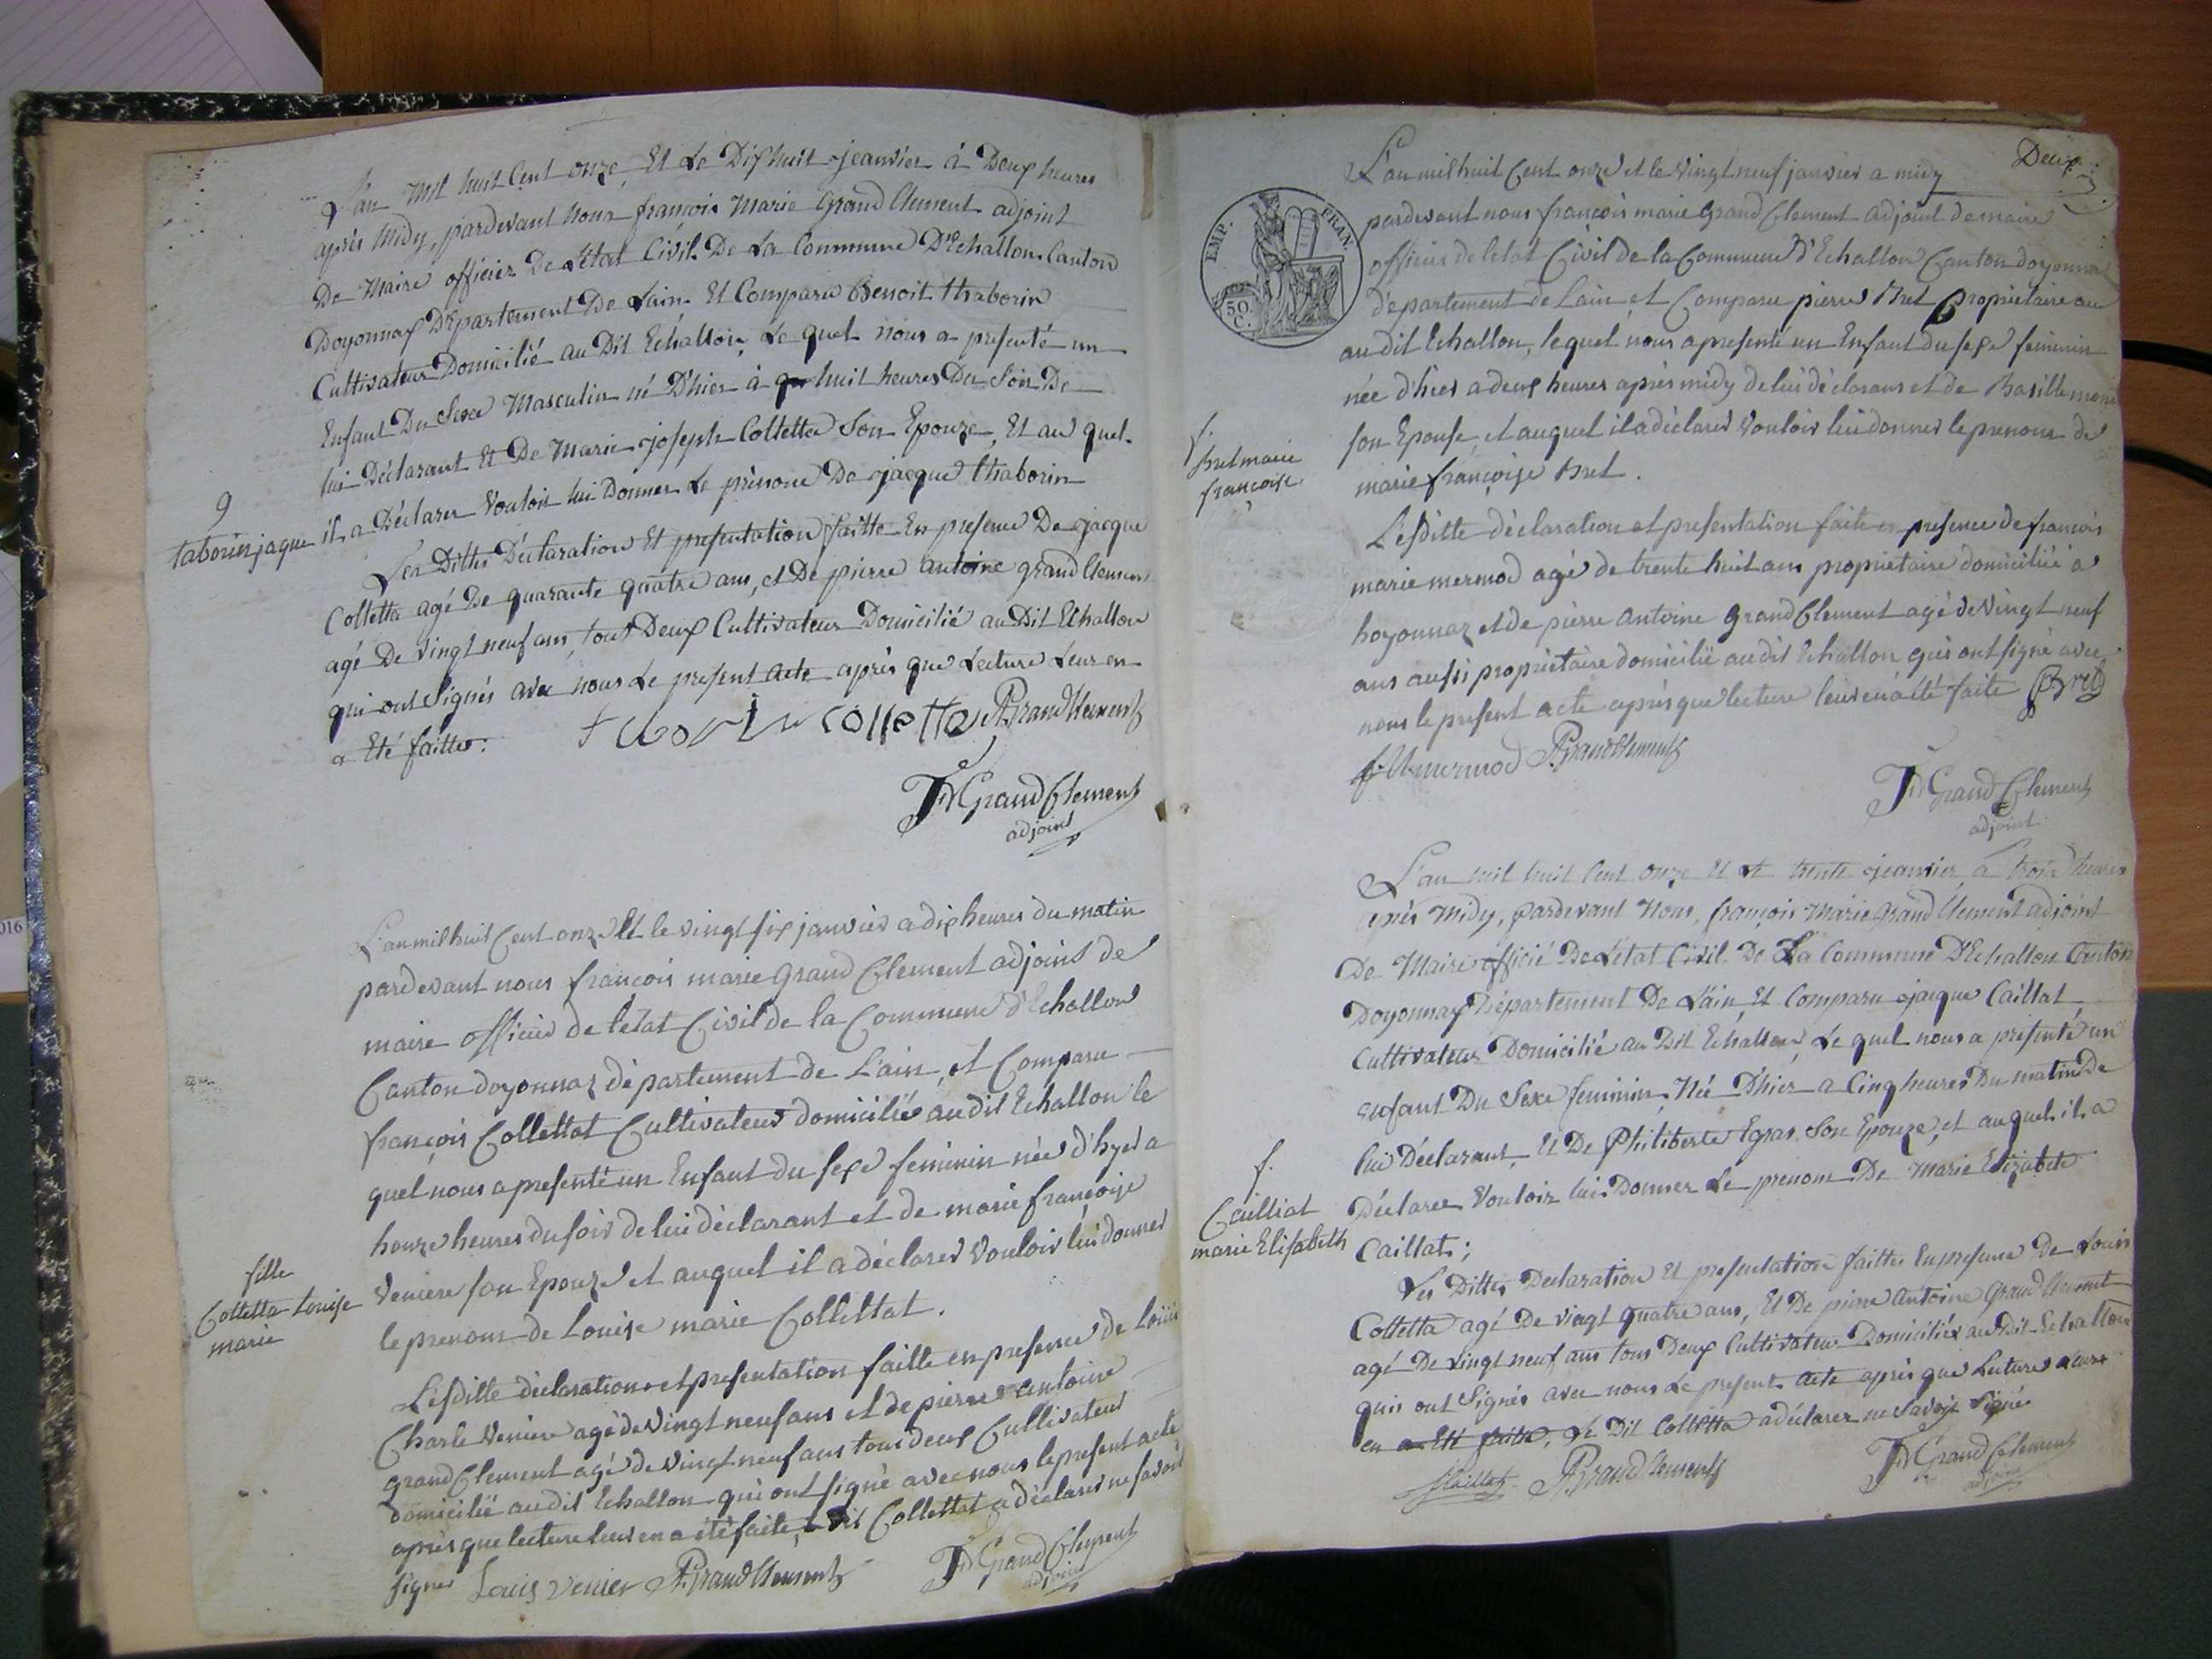 L'an mil huit Cent onze, Et Le Dix huit jeanvier à Deux heures
après Midy, pardevant nous françois Marie Grand Clement adjoint
De Maire officier De L'état Civil De La Commune D'Echallon Canton
Doyonnax Département De Lain Et Comparu Benoit thaborin
Cultivateur Domicilié au Dit Echallon, Le quel nous a presenté un
Enfant Du Sexe Masculin né D'hier à huit heures Du Soir De
lui Déclarant Et De Marie joseph Colletta Son Epouze, Et au quel
il a Déclarer Vouloir lui Donner Le prénom De jacque thaborin
9
taborin jaque
Les Dittes Déclaration Et presentation faitte En presence De jacque
Colletta agé De quarante quatre ans, et De pierre antoine grand Clement
agé De vingt neuf ans, tout Deux Cultivateur Domicilié au Dit Echallon
qui ont Signés avec nous Le present acte après que Lecture Leur en
a Eté faitte:
colletta PGrandClement
F Grand Clement
adjoint
L'an mil huit Cent onze Et le vingt six janvier a dix heures du matin
pardevant nous françois marie Grand Clement adjoint de
maire officier de létat Civil de la Commune d'Echallon
Canton doyonnaz département de Lain, et Comparu
françois Collettat Cultivateur domicilié audit Echallon le
quel nous a presenté un Enfant du sexe feminin née d'hyer a
honze heures du soir de lui déclarant et de marie françoise
Veniere son Epouze et auquel il a déclarer Vouloir lui donner
le prenom de Louise marie Collettat.
fille
Colletta Louise
marie
Lesditte déclaration et presentation faitte en presence de Louis
Charle Veniere agé de Vingt neuf ans et de pierre antoine
grand Clement agé de vingt neuf ans tous deux Cultivateur
domicilié audit Echallon qui ont signé avec nous le present acte
après que lecture leur en a été faite, le dit Collettat a déclarer ne savoir
signer Louis Venier PGrandClement
F Grand Clement
adjoint
Deux
L'an mil huit Cent onze et le vingt neuf janvier a midy
EMP. FRAN.
50 C.
pardevant nous françois marie Grand Clement adjoint de maire
officier de letat Civil de la Commune d'Echallon Canton doyonnaz
département de Lain, et Comparu pierre Bret propriétaire au
audit Echallon, lequel nous a presenté un Enfant du sexe feminin
née d'hier a deux heures après midy de lui déclarant et de Basille
son Epouse, et auquel il a déclarer Vouloir lui donner le prenom de
marie françoise Bret.
f.
Bret marie
françoise
Lesditte déclaration et presentation faite en presence de françois
marie mermod agé de trente huit ans propriétaire domicilié a
hoyonnaz et de pierre antoine Grand Clement agé de Vingt neuf
ans aussi propriétaire domicilié audit Echallon qui ont signé avec
nous le present acte après que lecture leur en à été faite Bret
f. M mermod PGrandClement
F Grand Clement
adjoint
L'an mil huit Cent onze Et Le trente jeanvier à trois heures
après Midy, pardevant Nous, françois Marie Grand Clement adjoint
De Maire officié De L'état Civil De La Commune D'Echallon Canton
Doyonnax Département De L'ain, Et Comparu jacque Caillat
Cultivateur Domicilié au Dit Echallon, Le quel nous a presenté un
enfant Du Sexe feminin Née D'hier a Cinq heures Du matin De
lui Déclarant, Et De Philiberte Egras Son Epouze, et auquel il a
Déclaree Vouloir lui Donner Le prenom De Marie Elizabete
Caillat;
f.
Cailliat
marie Elisabeth
Les Dittes Declaration Et presentation faittes En presence De Louis
Colletta agé De vingt quatre ans, Et De pierre antoine Grand Clement
agé De vingt neuf ans tous Deux Cultivateur Domiciliés au Dit Echallon
quis ont Signés avec nous Le present acte après que Lecture Leurs
en a Eté faitte, Le Dit Colletta a déclarer ne Savoir Signé
JCaillat PGrandClement
F Grand Clement
adjoint
016